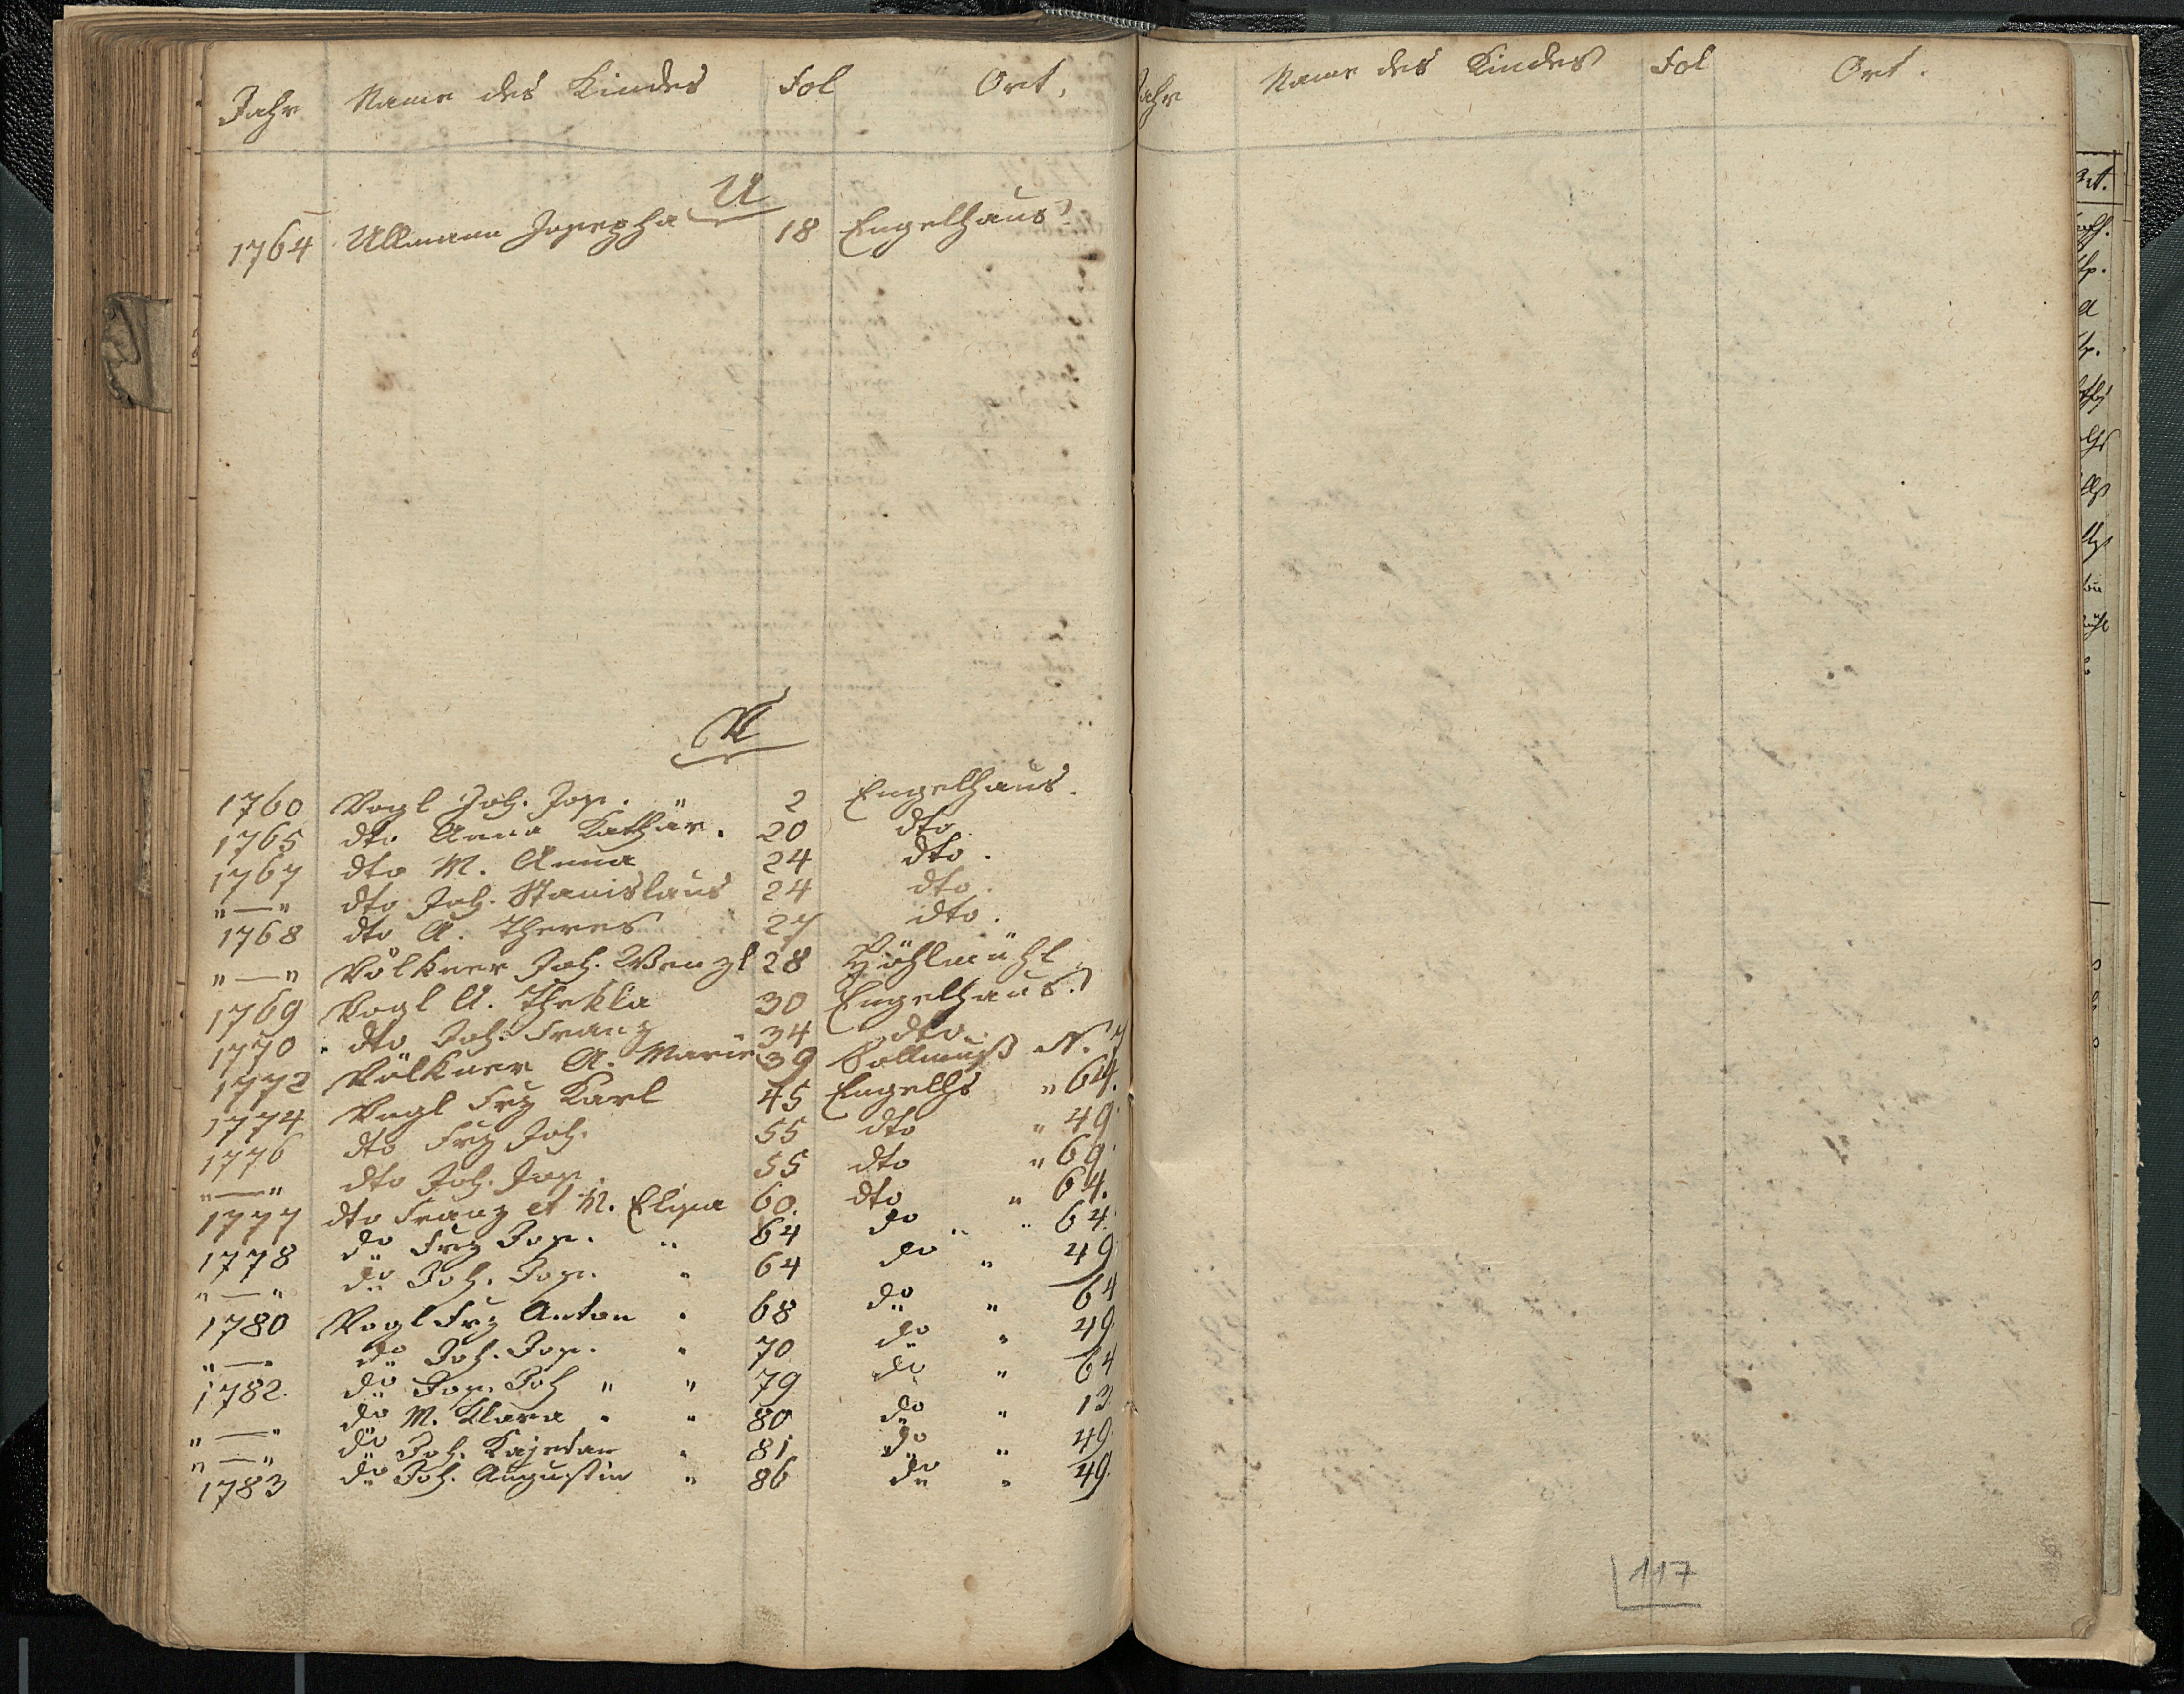 Jahr Name des Kindes Fol Ort.
U
1764 Ullmann Josepha 18 Engelhaus
V
1760 Vogl Joh. Jos. " 2 Engelhaus.
1765 dto Anna Kathar. 20 dto
1767 dto M. Anna 24 dto.
"—" dto Joh. Stanislaus 24 dto.
1768 dto A. Theres 27 dto.
"—" Völkner Joh. Wenzl 28 Höhlmühl
1769 Vogl A. Thekla 30 Engelhaus.
1770 dto Joh. Franz 34 dto.
1772 Völkner A. Marie 39 Sollmuß N. 7
1774 Vogl Frz Karl 45 Engelhs " 64.
1776 dto Frz Joh. 55 dto " 49.
"—" dto Joh. Jos. 55 dto " 69.
1777 dto Franz et M. Elisa 60. dto " 64.
1778 do Frz Jos. " 64 do " " 64.
"—" do Joh. Jos. " 64 do " 49
1780 Vogl Frz Anton " 68 do " 64
"—" do Joh. Jos. " 70 do " 49.
1782. do Jos. Joh " " 79 do " 64
"—" do M. Klara " " 80 do " 13.
"—" do Joh. Kajetan " 81 do " 49.
1783 do Joh. Augustin " 86 do " 49.
Jahr Name des Kindes Fol Ort.
117